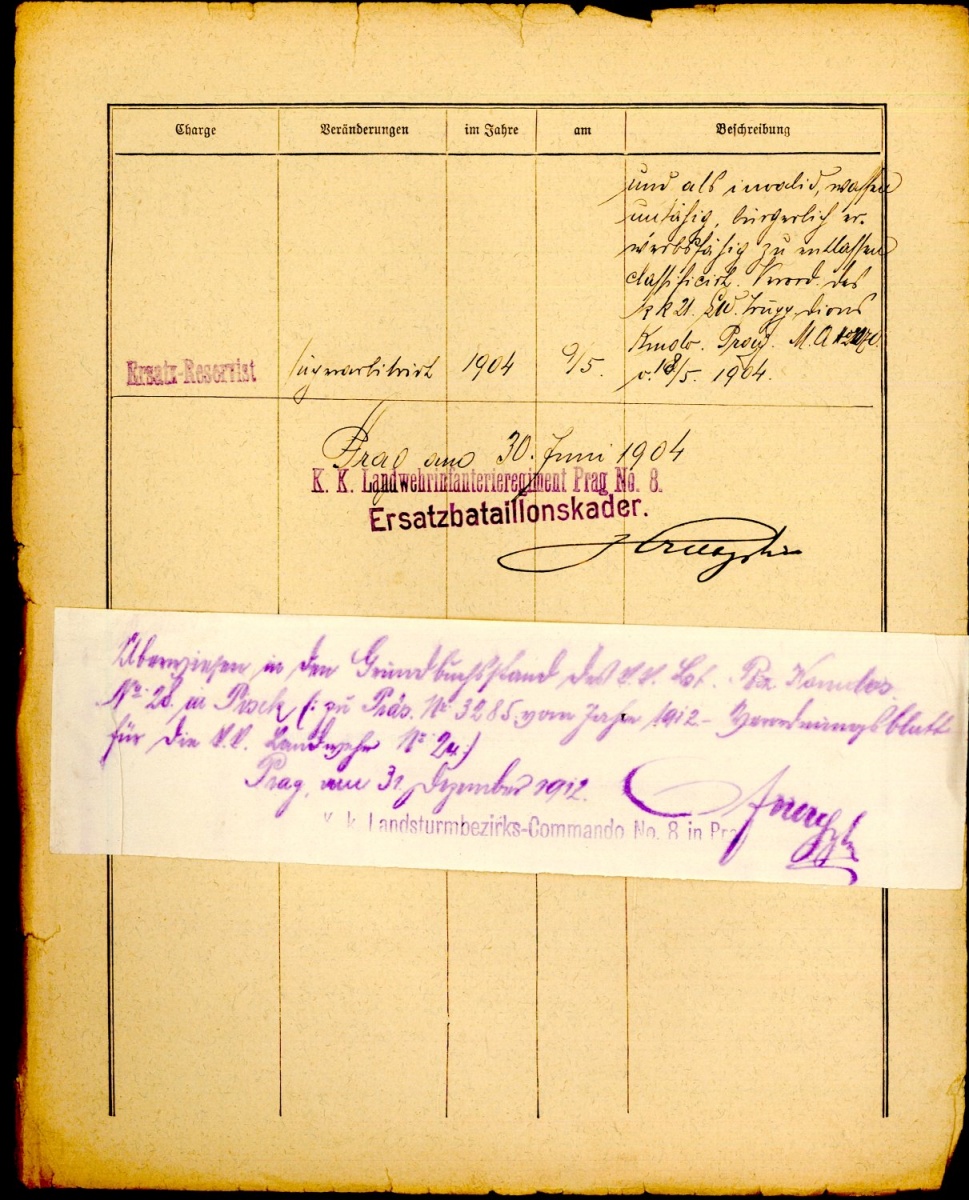 Charge Veränderungen im Jahre am Beschreibung
und als invalid, waffen
unfähig, bürgerlich er-
werbsfähig zu entlassen
classificirt. Verord. des
k k 21. Lw. Trupp. Divns
Kmdo. Prag. M.A.
v. 18/5. 1904.
Ersatz-Reservist superarbitrirt 1904 9/5.
Prag am 30. Juni 1904
K. K. Landwehrinfanterieregiment Prag No. 8.
Ersatzbataillonskader.
Überwiesen in den Grundbuchsstand des k.k. Lst. Bez. Komdos.
No. 28. in Pisek (: zu Präs. No. 3285. vom Jahre 1912 - Verordnungsblatt
für die k.k. Landwehr No. 24:)
Prag, am 31. Dezember 1912.
K. k. Landsturmbezirks-Commando No. 8 in Prag